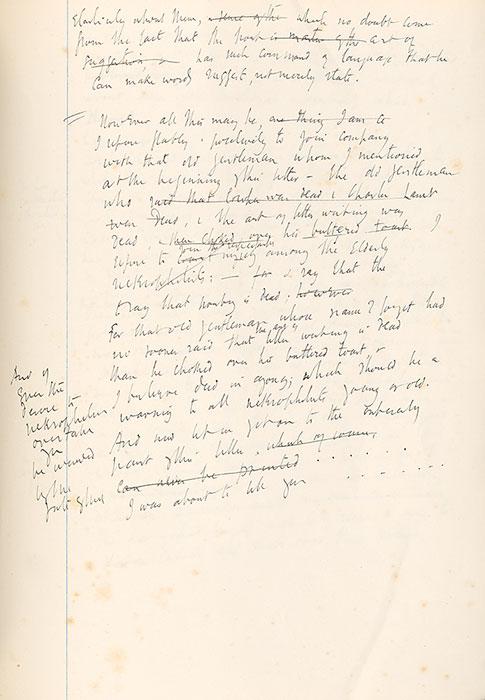 elasticity about them, a sense of the which no doubt come
from the fact that the poet is master of the art of
suggestion & has such command of language that he
can make words suggest, not merely state.
However all this may be, one thing I am
I refuse flatly & positively to join company
with that old gentleman whom I mentioned
at the beginning of this letter - the old gentleman
who said that Cowper was dead & Charles Lamb
was Dead, & the art of letter writing was
dead, & then choked over his buttered toast. I
refuse to count myself among the Elderly
nekrophilists: - for to say that the
to say that poetry is dead: however
For that old gentleman whose name I forget had
no sooner said that the art of letter writing is dead
than he choked over his buttered toast &
I believe died in agony; which should be a
warning to all nekrophilists, young or old.
And now let us get on to the
part of this letter, which of course,
can never be printed . . . . . .
I was about to tell you . . . . . .
And if
ever the
desire to
nekrophilise
overtake
you
be warned
by the
fate of this